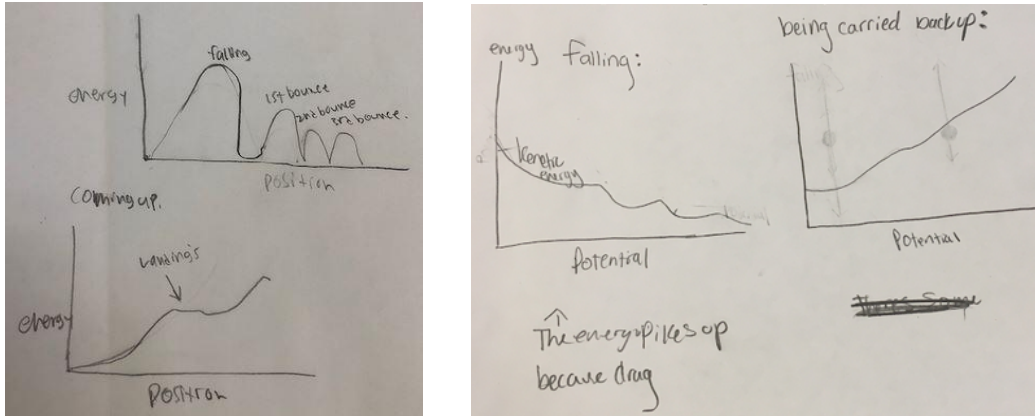 falling
energy
1st bounce
2nd bounce
3rd bounce.
position
Coming up.
Landing's
energy
position
energy
falling:
Kenetic
energy
Potential
The energy pikes up
becaue drag
being carried back up:
Potential